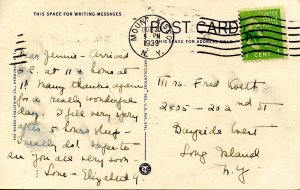 THIS SPACE FOR WRITING MESSAGES
POST CARD
THIS SPACE FOR ADDRESS ONLY
MOUNT
N.Y.
5 PM
1939
1 CENT 1
Dear Jennie - Arrived
O.K. at 11 + home at
12. Many thanks again
for a really wonderful
day. I feel very very
after 5 hours sleep -
really do! Hope to
see you all very soon -
Love - Elizabeth G
Ms. Fred Koest
2805 - 202nd St
Bayside West
Long Island
N.Y.